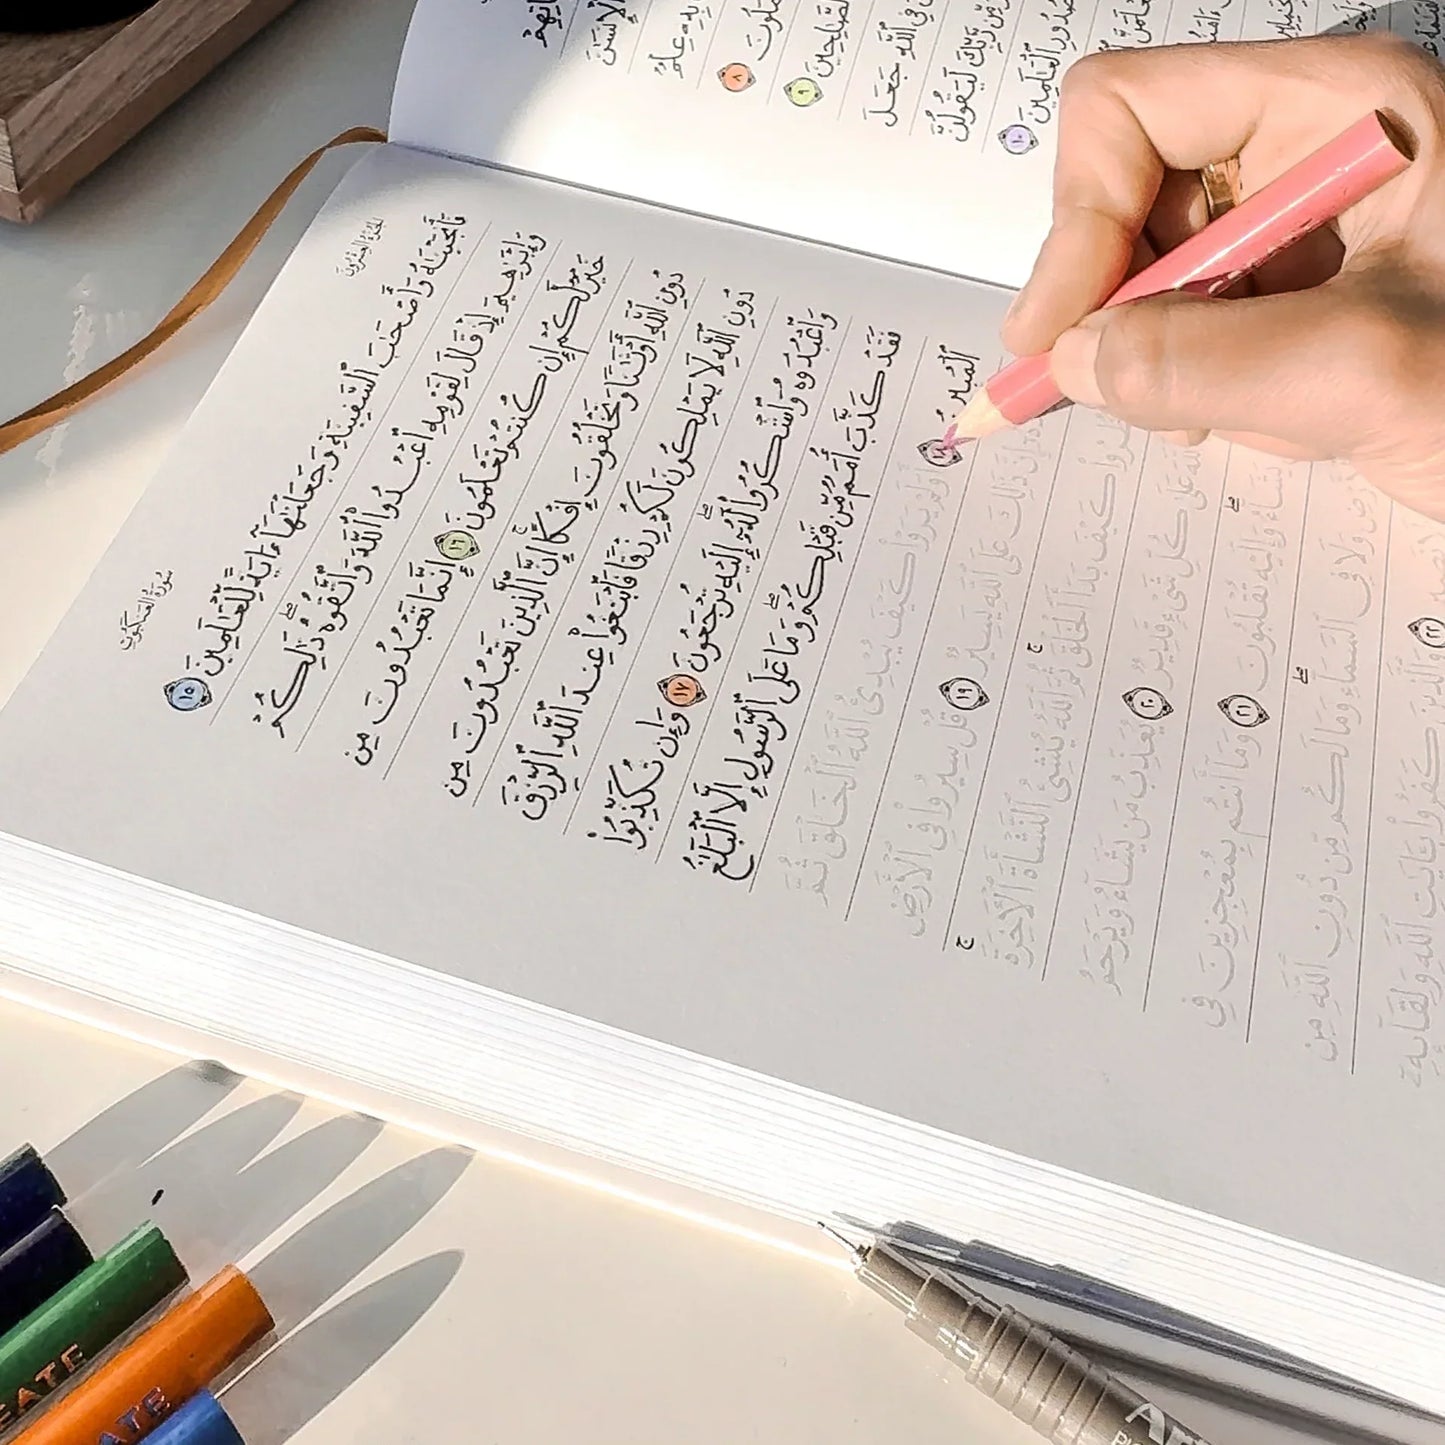 ٱلْإِنسَٰنَ
بِهِۦ عِلْمٌ
٨
ٱلصَّٰلِحِينَ ٩
فِي ٱللَّهِ جَعَلَ
مِّن رَّبِّكَ لَيَقُولُنَّ
صُدُورِ ٱلْعَٰلَمِينَ ١٠
الجزء العشرون
سورة العنكبوت
فَأَنجَيْنَٰهُ وَأَصْحَٰبَ ٱلسَّفِينَةِ وَجَعَلْنَٰهَآ ءَايَةً لِّلْعَٰلَمِينَ ١٥
وَإِبْرَٰهِيمَ إِذْ قَالَ لِقَوْمِهِ ٱعْبُدُوا۟ ٱللَّهَ وَٱتَّقُوهُ ۖ ذَٰلِكُمْ
خَيْرٌ لَّكُمْ إِن كُنتُمْ تَعْلَمُونَ ١٦ إِنَّمَا تَعْبُدُونَ مِن
دُونِ ٱللَّهِ أَوْثَٰنًا وَتَخْلُقُونَ إِفْكًا ۚ إِنَّ ٱلَّذِينَ تَعْبُدُونَ مِن
دُونِ ٱللَّهِ لَا يَمْلِكُونَ لَكُمْ رِزْقًا فَٱبْتَغُوا۟ عِندَ ٱللَّهِ ٱلرِّزْقَ
وَٱعْبُدُوهُ وَٱشْكُرُوا۟ لَهُۥٓ ۖ إِلَيْهِ تُرْجَعُونَ ١٧ وَإِن تُكَذِّبُوا۟
فَقَدْ كَذَّبَ أُمَمٌ مِّن قَبْلِكُمْ ۖ وَمَا عَلَى ٱلرَّسُولِ إِلَّا ٱلْبَلَٰغُ
ٱلْمُبِينُ ١٨ أَوَلَمْ يَرَوْا۟ كَيْفَ يُبْدِئُ ٱللَّهُ ٱلْخَلْقَ ثُمَّ
إِنَّ ذَٰلِكَ عَلَى ٱللَّهِ يَسِيرٌ ١٩ قُلْ سِيرُوا۟ فِى ٱلْأَرْضِ
كَيْفَ بَدَأَ ٱلْخَلْقَ ۚ ثُمَّ ٱللَّهُ يُنشِئُ ٱلنَّشْأَةَ ٱلْءَاخِرَةَ ۚ
ٱللَّهَ عَلَىٰ كُلِّ شَىْءٍ قَدِيرٌ ٢٠ يُعَذِّبُ مَن يَشَآءُ وَيَرْحَمُ
يَشَآءُ ۖ وَإِلَيْهِ تُقْلَبُونَ ٢١ وَمَآ أَنتُم بِمُعْجِزِينَ فِى
وَلَا فِى ٱلسَّمَآءِ ۖ وَمَا لَكُم مِّن دُونِ ٱللَّهِ مِن
نَصِيرٍ ٢٢ وَٱلَّذِينَ كَفَرُوا۟ بِـَٔايَٰتِ ٱللَّهِ وَلِقَآئِهِۦٓ
EATE
ATE